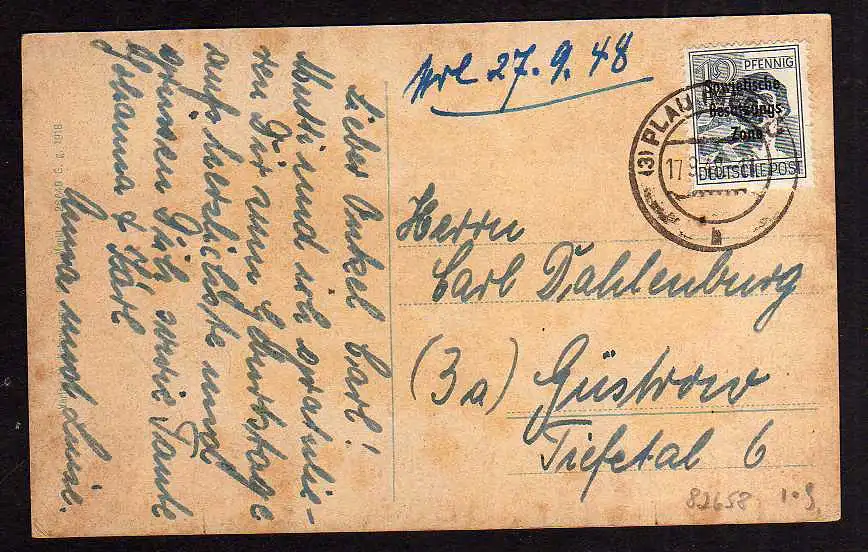 Lieber Onkel Carl!
Mutti und ich gratulie-
ren Dir zum Geburtstage
aufs herzlichste und
grüssen Dich sowie Tante
Johanna & Karl
Anna und Luise.
27.9.48
12 PFENNIG
Sowjetische
Besatzungs
Zone
DEUTSCHE POST
(3) PLAU
17.9.48
b
Herrn
Carl Dahlenburg
(3a) Güstrow
Tiefetal 6
82658